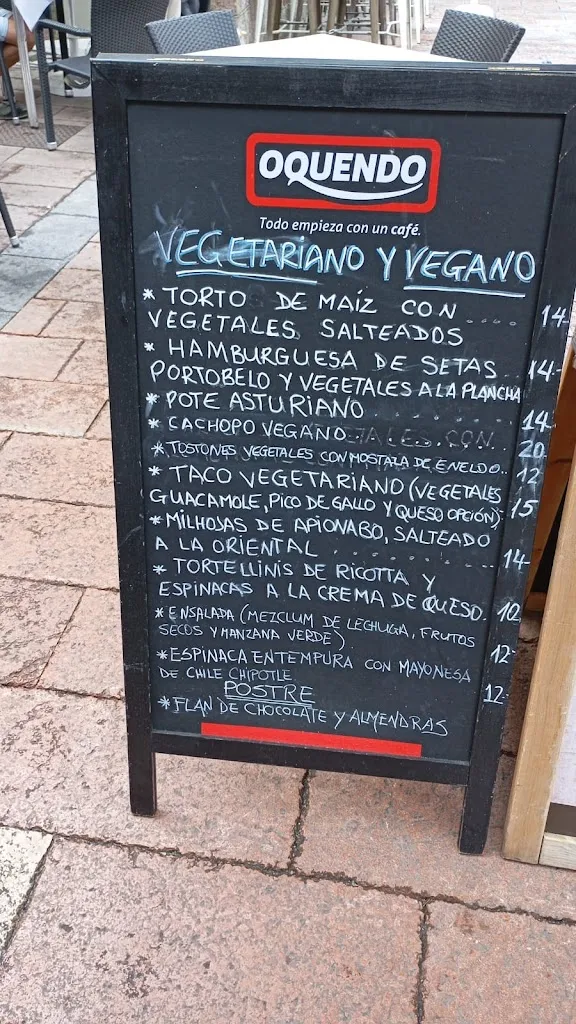 OQUENDO
Todo empieza con un café.
VEGETARIANO Y VEGANO
* TORTO DE MAÍZ CON .... 14.-
VEGETALES SALTEADOS
* HAMBURGUESA DE SETAS 14-
PORTOBELO Y VEGETALES A LA PLANCHA
* POTE ASTURIANO ...... 14-
* CACHOPO VEGANO 20
* TOSTONES VEGETALES CON MOSTAZA DE ENELDO.. 12
* TACO VEGETARIANO (VEGETALES
GUACAMOLE, PICO DE GALLO Y QUESO OPCIÓN). 15
* MILHOJAS DE APIONABO, SALTEADO
A LA ORIENTAL .......... 14-
* TORTELLINIS DE RICOTTA Y
ESPINACAS A LA CREMA DE QUESO.
* ENSALADA (MEZCLUM DE LECHUGA, FRUTOS
SECOS Y MANZANA VERDE) 12-
* ESPINACA EN TEMPURA CON MAYONESA
DE CHILE CHIPOTLE 12-
POSTRE
* FLAN DE CHOCOLATE Y ALMENDRAS